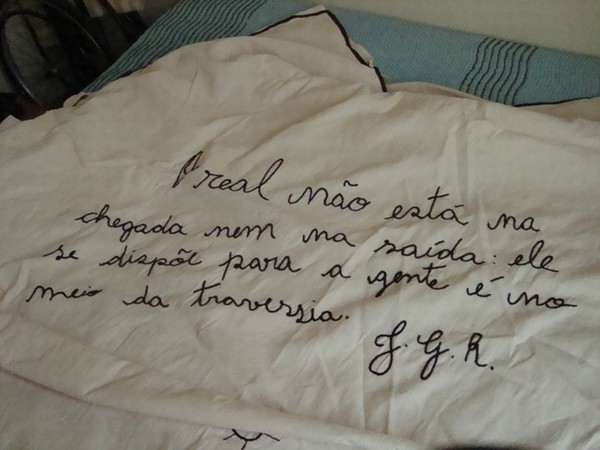 O real não está na
chegada nem na saída: ele
se dispõe para a gente é no
meio da traversia.
J. G. R.